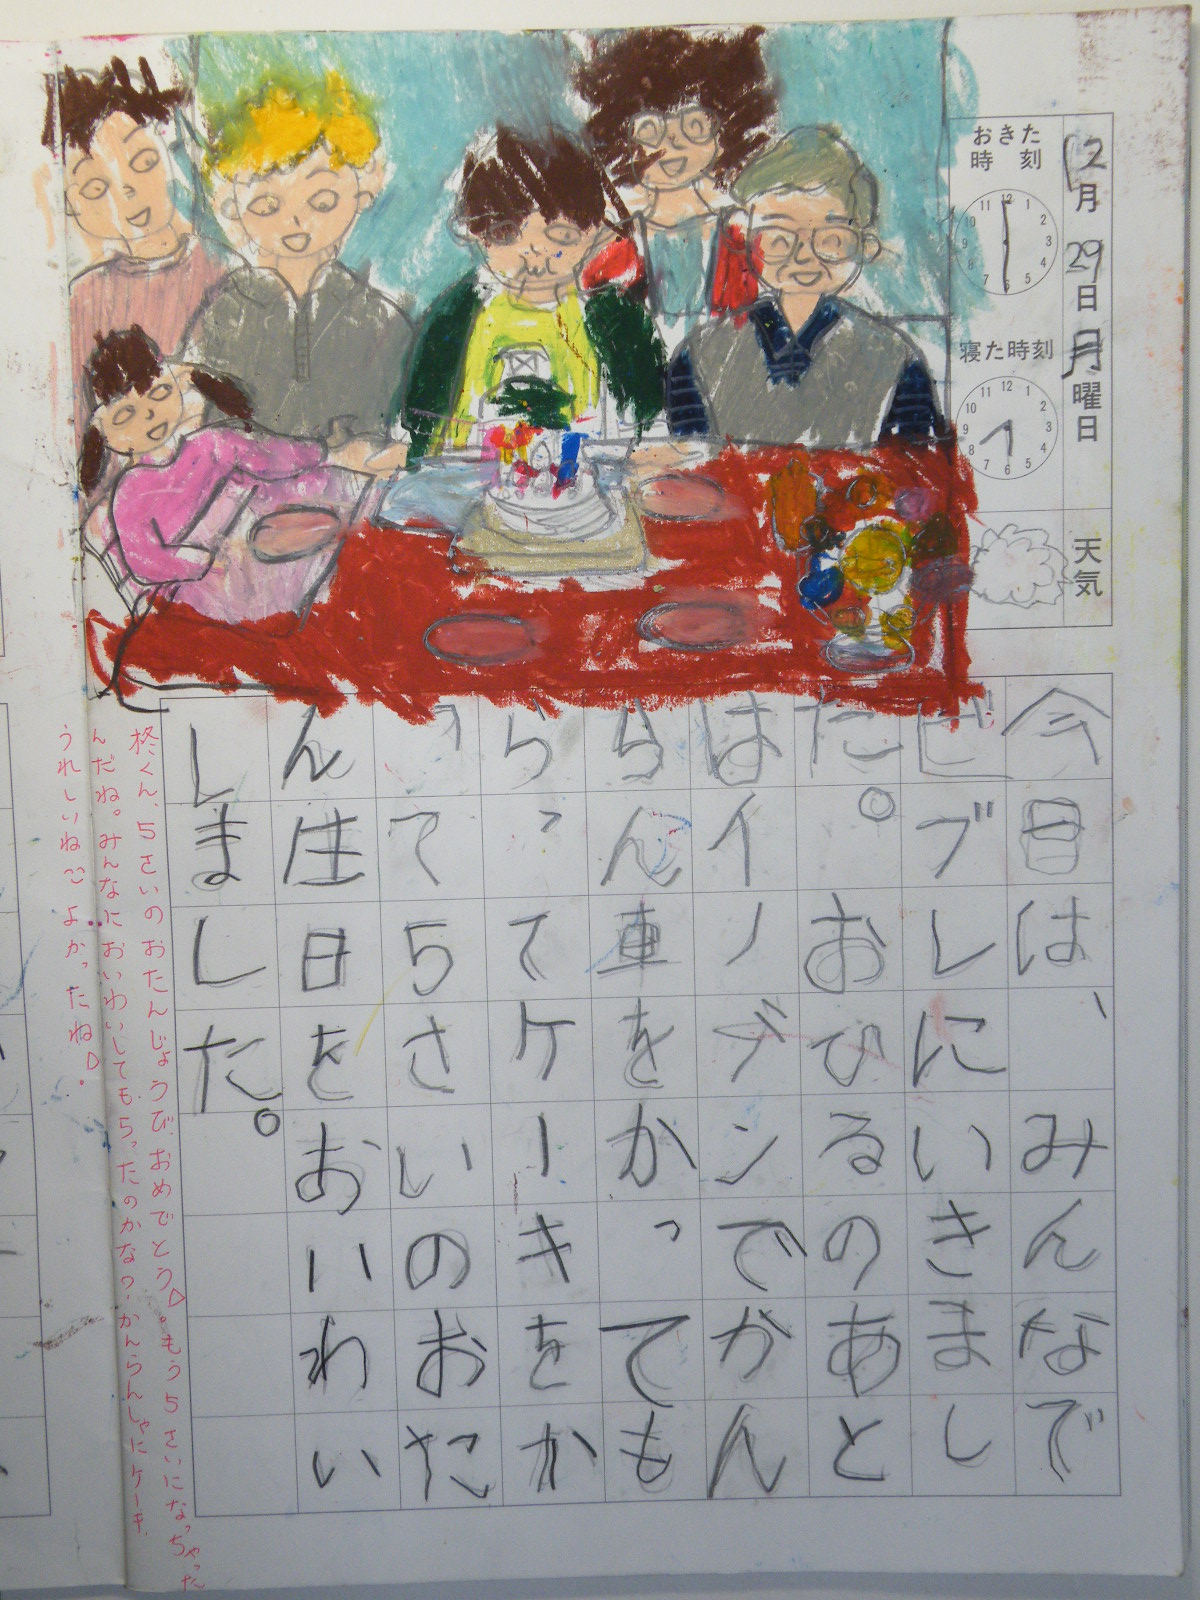 12月29日月曜日
天気
おきた
時刻
寝た時刻
今日は、みんなで
ビブレにいきまし
た。おひるのあと
はイノブンでかん
らん車をかっても
らってケーキをか
って5さいのおた
ん生日をおいわい
しました。
柊くん、5さいのおたんじょうび、おめでとう♡。もう5さいになっちゃった
んだね。みんなにおいわいしてもらったのかな?かんらんしゃにケーキ、
うれしいね よかったね♡。